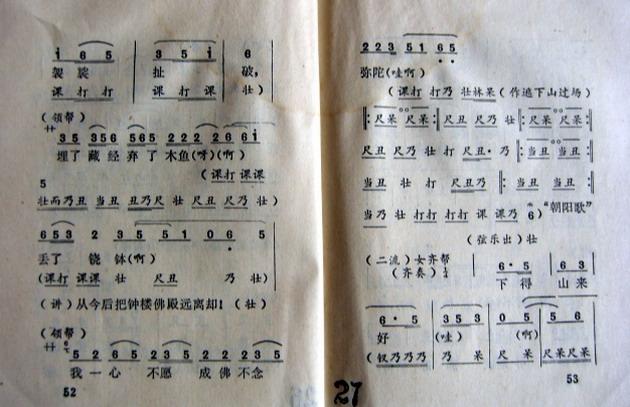 i 6 5 3 5 i 6
袈裟 扯 破,
课 打 打 课 打 课 壮)
(领帮)
サ 3 5 3 5 6 5 6 5 2 2 2 2 6 6 i
埋了 藏 经 弃 了 木鱼(呀)(啊)
(课打 课课
5
壮而乃丑 当丑 丑乃尺 壮 尺丑 尺乃 壮)
6 5 3 2 3 5 5 1 0 6 5
丢了 铙 钵(啊)
(课打 课课 壮 尺丑 乃 壮)
(讲)从今后把钟楼佛殿远离却!(壮)
(领帮)
サ 5 2 6 5 2 3 5 2 2 2 3 5
我 一 心 不愿 成 佛 不念
52
2 2 3 5 1 6 5
弥陀(哇啊)
(课打 打乃 壮林呆(作逃下山过场)
尺呆 尺呆 尺丑 尺乃 壮 尺呆 尺呆
尺丑 尺乃 壮 打 尺丑·乃 当丑 当丑
当丑 壮 打 尺丑乃 当丑 当丑
当乃 壮 打打 打打 课 课乃 6)“朝阳歌”
(弦乐出)壮
(二流)女齐帮
(齐奏) 6·5 6 3
下得 山来
6·5 3 5 3 0 5 5 6
好 (哇) (啊)
(钗乃乃乃 乃 呆 尺 呆 尺呆尺呆
27
53